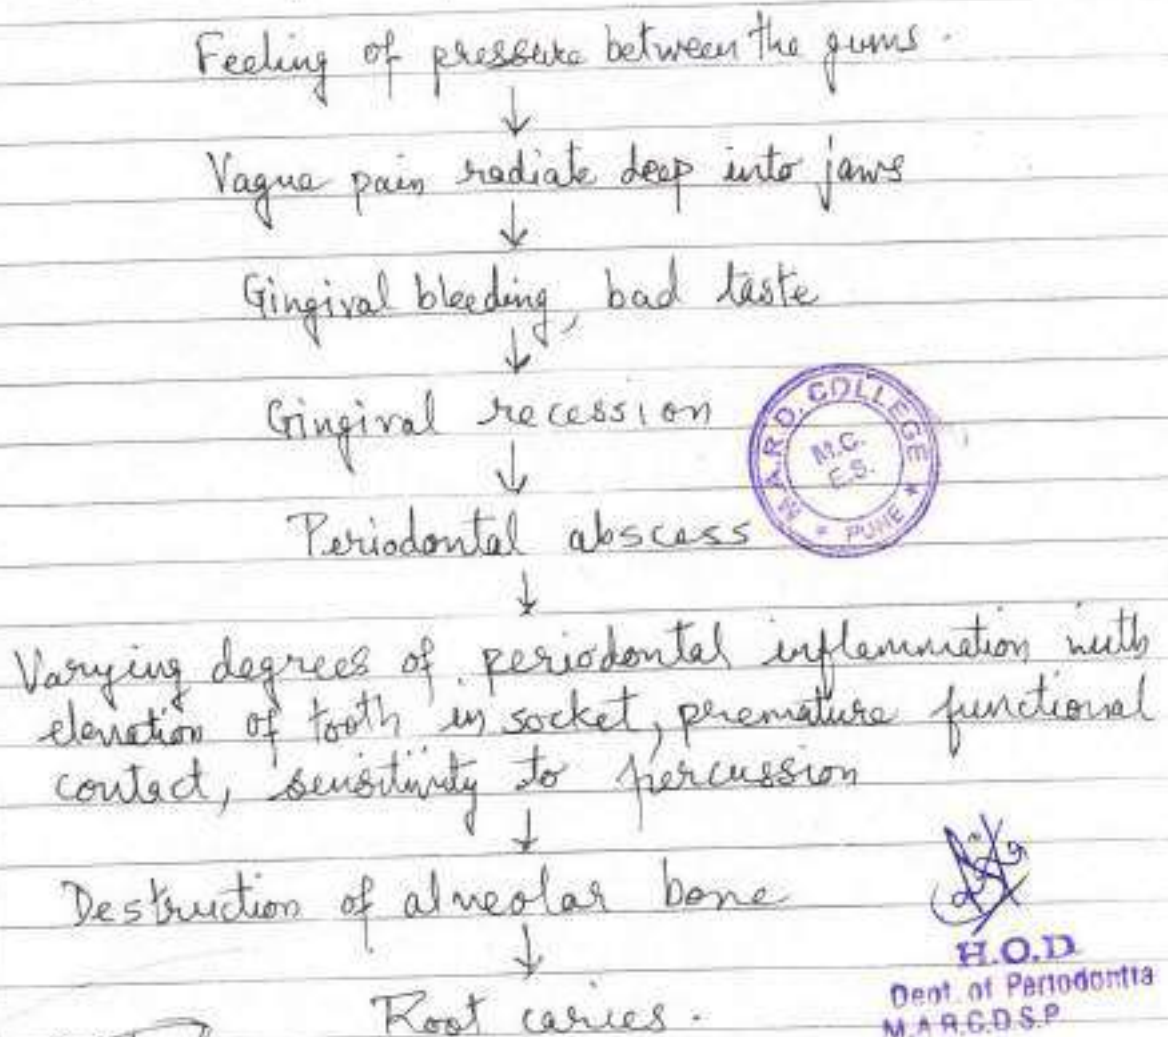 Feeling of pressure between the gums.
↓
Vague pain radiate deep into jaws
↓
Gingival bleeding, bad taste
↓
Gingival recession
↓
Periodontal abscess
M.A.R.D. COLLEGE
M.C.
E.S.
* PUNE *
↓
Varying degrees of periodontal inflammation with
elevation of tooth in socket, premature functional
contact, sensitivity to percussion
↓
Destruction of alveolar bone
↓
Root caries.
H.O.D
Dept. of Periodontia
M.A.R.C.D.S.P